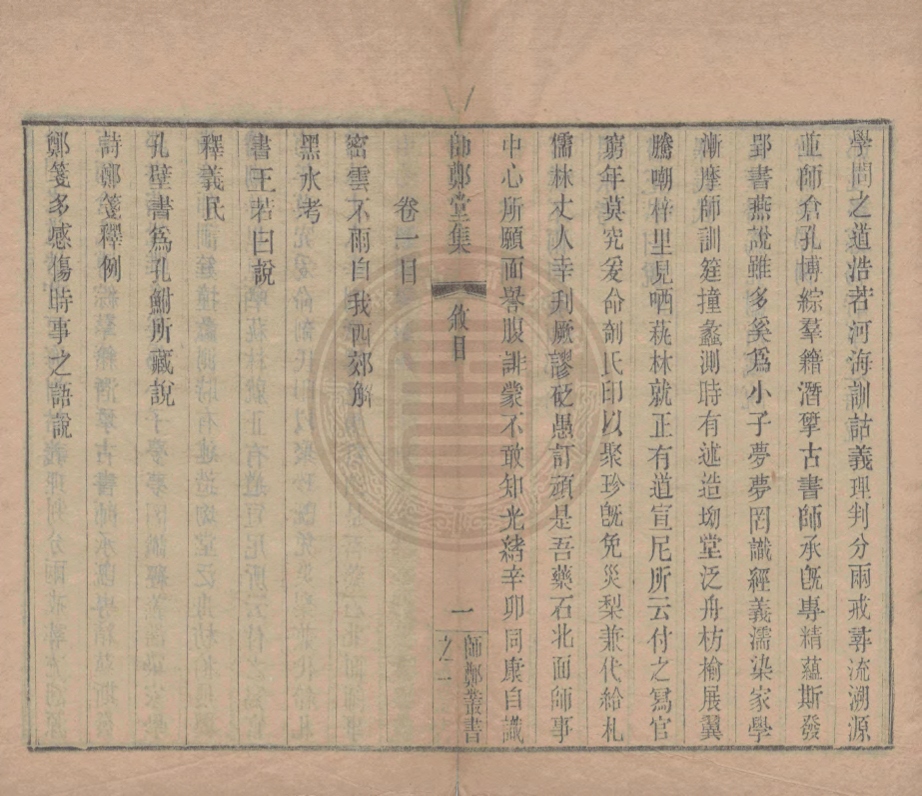 學問之道浩若河海訓詁義理判分兩戒尋流溯源
亚師倉孔博綜羣籍潛揅古書師承旣專精蘊斯發
郢書燕說雖多奚爲小子夢夢罔識經義濡染家學
漸摩師訓筳撞蠡測時有述造坳堂泛舟枋榆展翼
騰嘲梓里見哂蓺林就正有道宣尼所云付之寫官
窮年莫究爰命剞氏印以聚珍旣免災梨兼代給札
儒林丈人幸刋厥謬砭愚訂頑是吾藥石北面師事
中心所願面譽腹誹蒙不敢知光緒辛卯同康自識
師鄭堂集
敘目
一
師鄭叢書
之二
卷一目
密雲不雨自我西郊解
黑水考
書王若曰說
釋義氏
孔壁書爲孔鮒所藏說
詩鄭箋釋例
鄭箋多感傷時事之語說